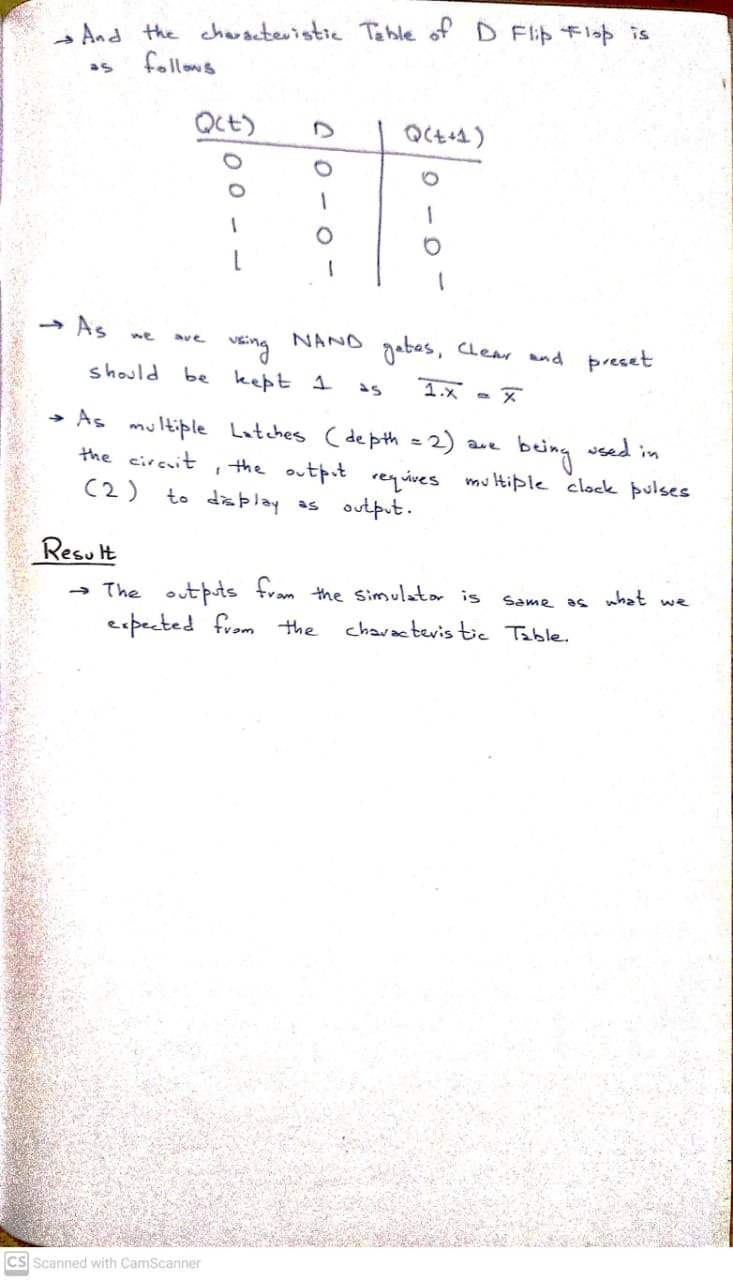 → And the characteristic Table of D Flip Flop is
as follows
Q(t) D Q(t+1)
0 0 0
0 1 1
1 0 0
1 1 1
→ As we are using NAND gates, Clear and preset
should be kept 1 as $\overline{1.X} = \overline{X}$
→ As multiple Latches (depth = 2) are being used in
the circuit, the output requires multiple clock pulses
(2) to display as output.
Result
→ The outputs from the simulator is same as what we
expected from the characteristic Table.
CS Scanned with CamScanner